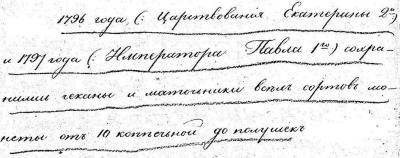 1796 года, (: Царствованія Екатерины 2ой)
и 1797 года (: Императора Павла 1го) сохра-
нились чеканы и маточники всѣхъ сортовъ мо-
неты отъ 10 копѣечной до полушекъ